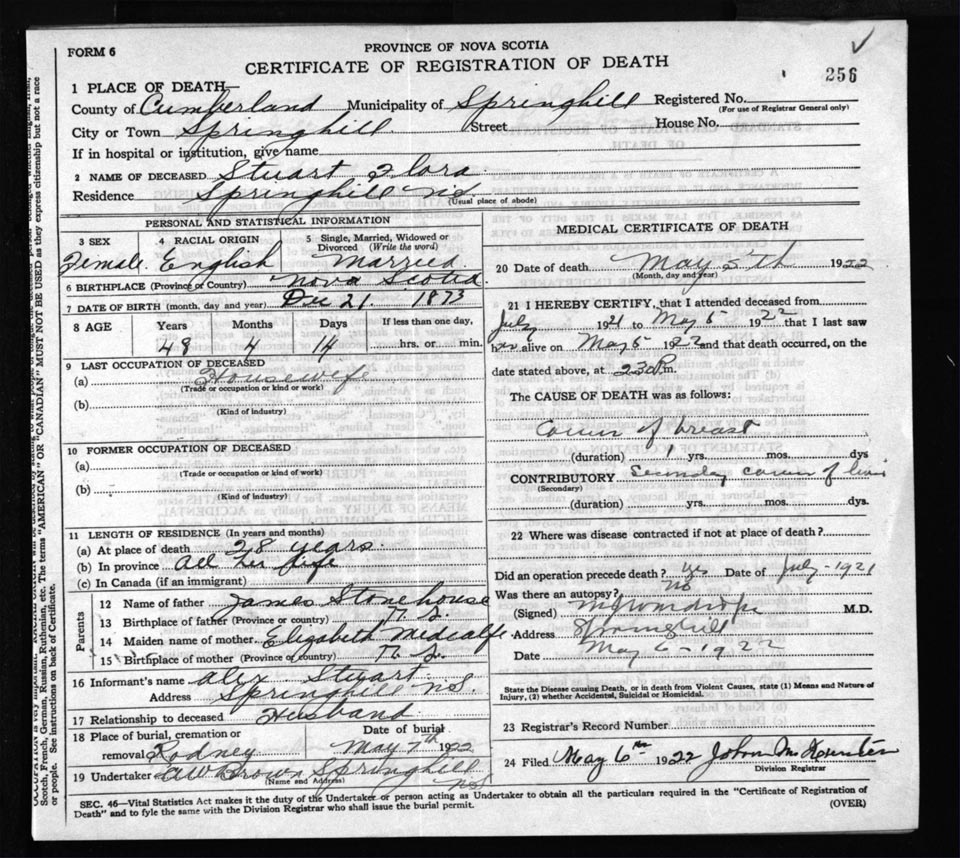 FORM 6
PROVINCE OF NOVA SCOTIA
CERTIFICATE OF REGISTRATION OF DEATH
256
1 PLACE OF DEATH—
County of Cumberland Municipality of Springhill Registered No.
(For use of Registrar General only)
City or Town Springhill Street House No.
If in hospital or institution, give name
2 NAME OF DECEASED Stuart Flora
Residence Springhill N.S.
(Usual place of abode)
PERSONAL AND STATISTICAL INFORMATION
3 SEX 4 RACIAL ORIGIN 5 Single, Married, Widowed or Divorced (Write the word)
Female. English Married.
6 BIRTHPLACE (Province or Country) Nova Scotia
7 DATE OF BIRTH (month, day and year) Dec 21 1873
8 AGE Years Months Days If less than one day,
48 4 14 hrs. or min.
9 LAST OCCUPATION OF DECEASED
(a) Housewife
(Trade or occupation or kind of work)
(b)
(Kind of industry)
10 FORMER OCCUPATION OF DECEASED
(a)
(Trade or occupation or kind of work)
(b)
(Kind of industry)
11 LENGTH OF RESIDENCE (In years and months)
(a) At place of death 28 years.
(b) In province all her life
(c) In Canada (if an immigrant)
Parents
12 Name of father James Stonehouse
13 Birthplace of father (Province or country) N.S.
14 Maiden name of mother Elizabeth Medcalfe
15 Birthplace of mother (Province or country) N.S.
16 Informant's name Alex Stuart
Address Springhill N.S.
17 Relationship to deceased Husband
18 Place of burial, cremation or Date of burial
removal Rodney May 7th 1922
19 Undertaker A W Brown Springhill
(Name and Address) N.S.
MEDICAL CERTIFICATE OF DEATH
20 Date of death May 5th 1922
(Month, day and year)
21 I HEREBY CERTIFY, that I attended deceased from
July 1921 to May 5 1922 that I last saw
her alive on May 5 1922 and that death occurred, on the
date stated above, at 2.30 P.m.
The CAUSE OF DEATH was as follows:
of breast
(duration) 1 yrs. mos. dys
CONTRIBUTORY of
(Secondary)
(duration) yrs. mos. dys.
22 Where was disease contracted if not at place of death?
Did an operation precede death? yes Date of July - 1921
Was there an autopsy? No
(Signed) M.D.
Address Springhill
Date May 6 - 1922
State the Disease causing Death, or in death from Violent Causes, state (1) Means and Nature of
Injury, (2) whether Accidental, Suicidal or Homicidal.
23 Registrar's Record Number
24 Filed May 6th 1922 John M Hunter
Division Registrar
SEC. 46—Vital Statistics Act makes it the duty of the Undertaker or person acting as Undertaker to obtain all the particulars required in the "Certificate of Registration of
Death" and to fyle the same with the Division Registrar who shall issue the burial permit.
(OVER)
Scotch, French, German, Russian, Ruthenian, etc. The terms "AMERICAN" OR "CANADIAN" MUST NOT BE USED as they express citizenship but not a race
or people. See instructions on back of Certificate.